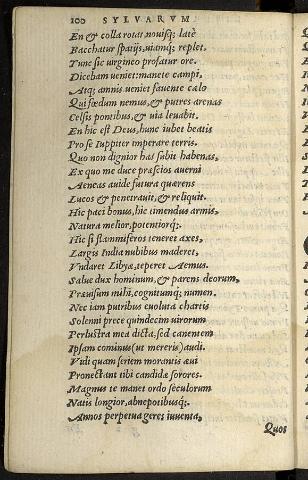 100 SYLVARVM
En & colla rotat, nouisq; latè
Bacchatur spatijs, uiamq; replet.
Tunc sic uirgineo profatur ore.
Dicebam ueniet: manete campi,
Atq; amnis ueniet fauente cælo
Qui fœdum nemus, & putres arenas
Celsis pontibus, & uia leuabit.
En hic est Deus, hunc iubet beatis
Pro se Iuppiter imperare terris.
Quo non dignior has subit habenas,
Ex quo me duce præscios auerni
Aeneas auide futura quærens
Lucos & penetrauit, & reliquit.
Hic paci bonus, hic timendus armis,
Natura melior, potentiorq;.
Hic si flammiferos teneret axes,
Largis India nubibus maderet,
Vndaret Libya, teperet Aemus.
Salue dux hominum, & parens deorum,
Præuisum mihi, cognitumq; numen.
Nec iam putribus euoluta chartis
Solenni prece quindecim uirorum
Perlustra mea dicta, sed canentem
Ipsam cominus (ut mereris) audi.
Vidi quam seriem morantis æui
Pronectant tibi candidæ sorores.
Magnus te manet ordo seculorum
Natis longior, abnepotibusq;.
Annos perpetua geres iuuenta,
Quos